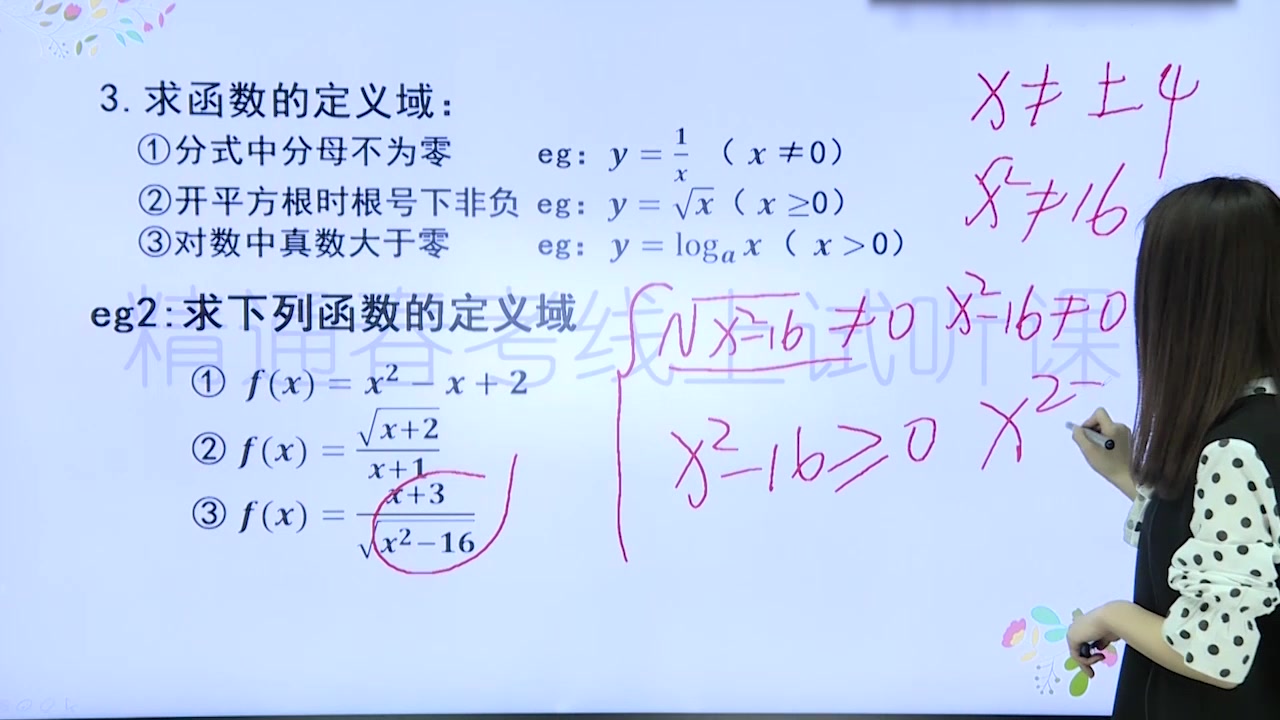 3.求函数的定义域：
①分式中分母不为零 eg：y = 1/x （ x ≠0）
②开平方根时根号下非负 eg：y = √x（ x ≥0）
③对数中真数大于零 eg：y = logₐ x （ x > 0）
eg2:求下列函数的定义域
① f(x) = x² − x + 2
② f(x) = √(x+2)/(x+1)
③ f(x) = (x+3)/√(x²−16)
精通春考线上试听课
x ≠ ±4
x² ≠ 16
√(x²-16) ≠ 0
x²-16 ≠ 0
x²-16 ≥ 0
x²-